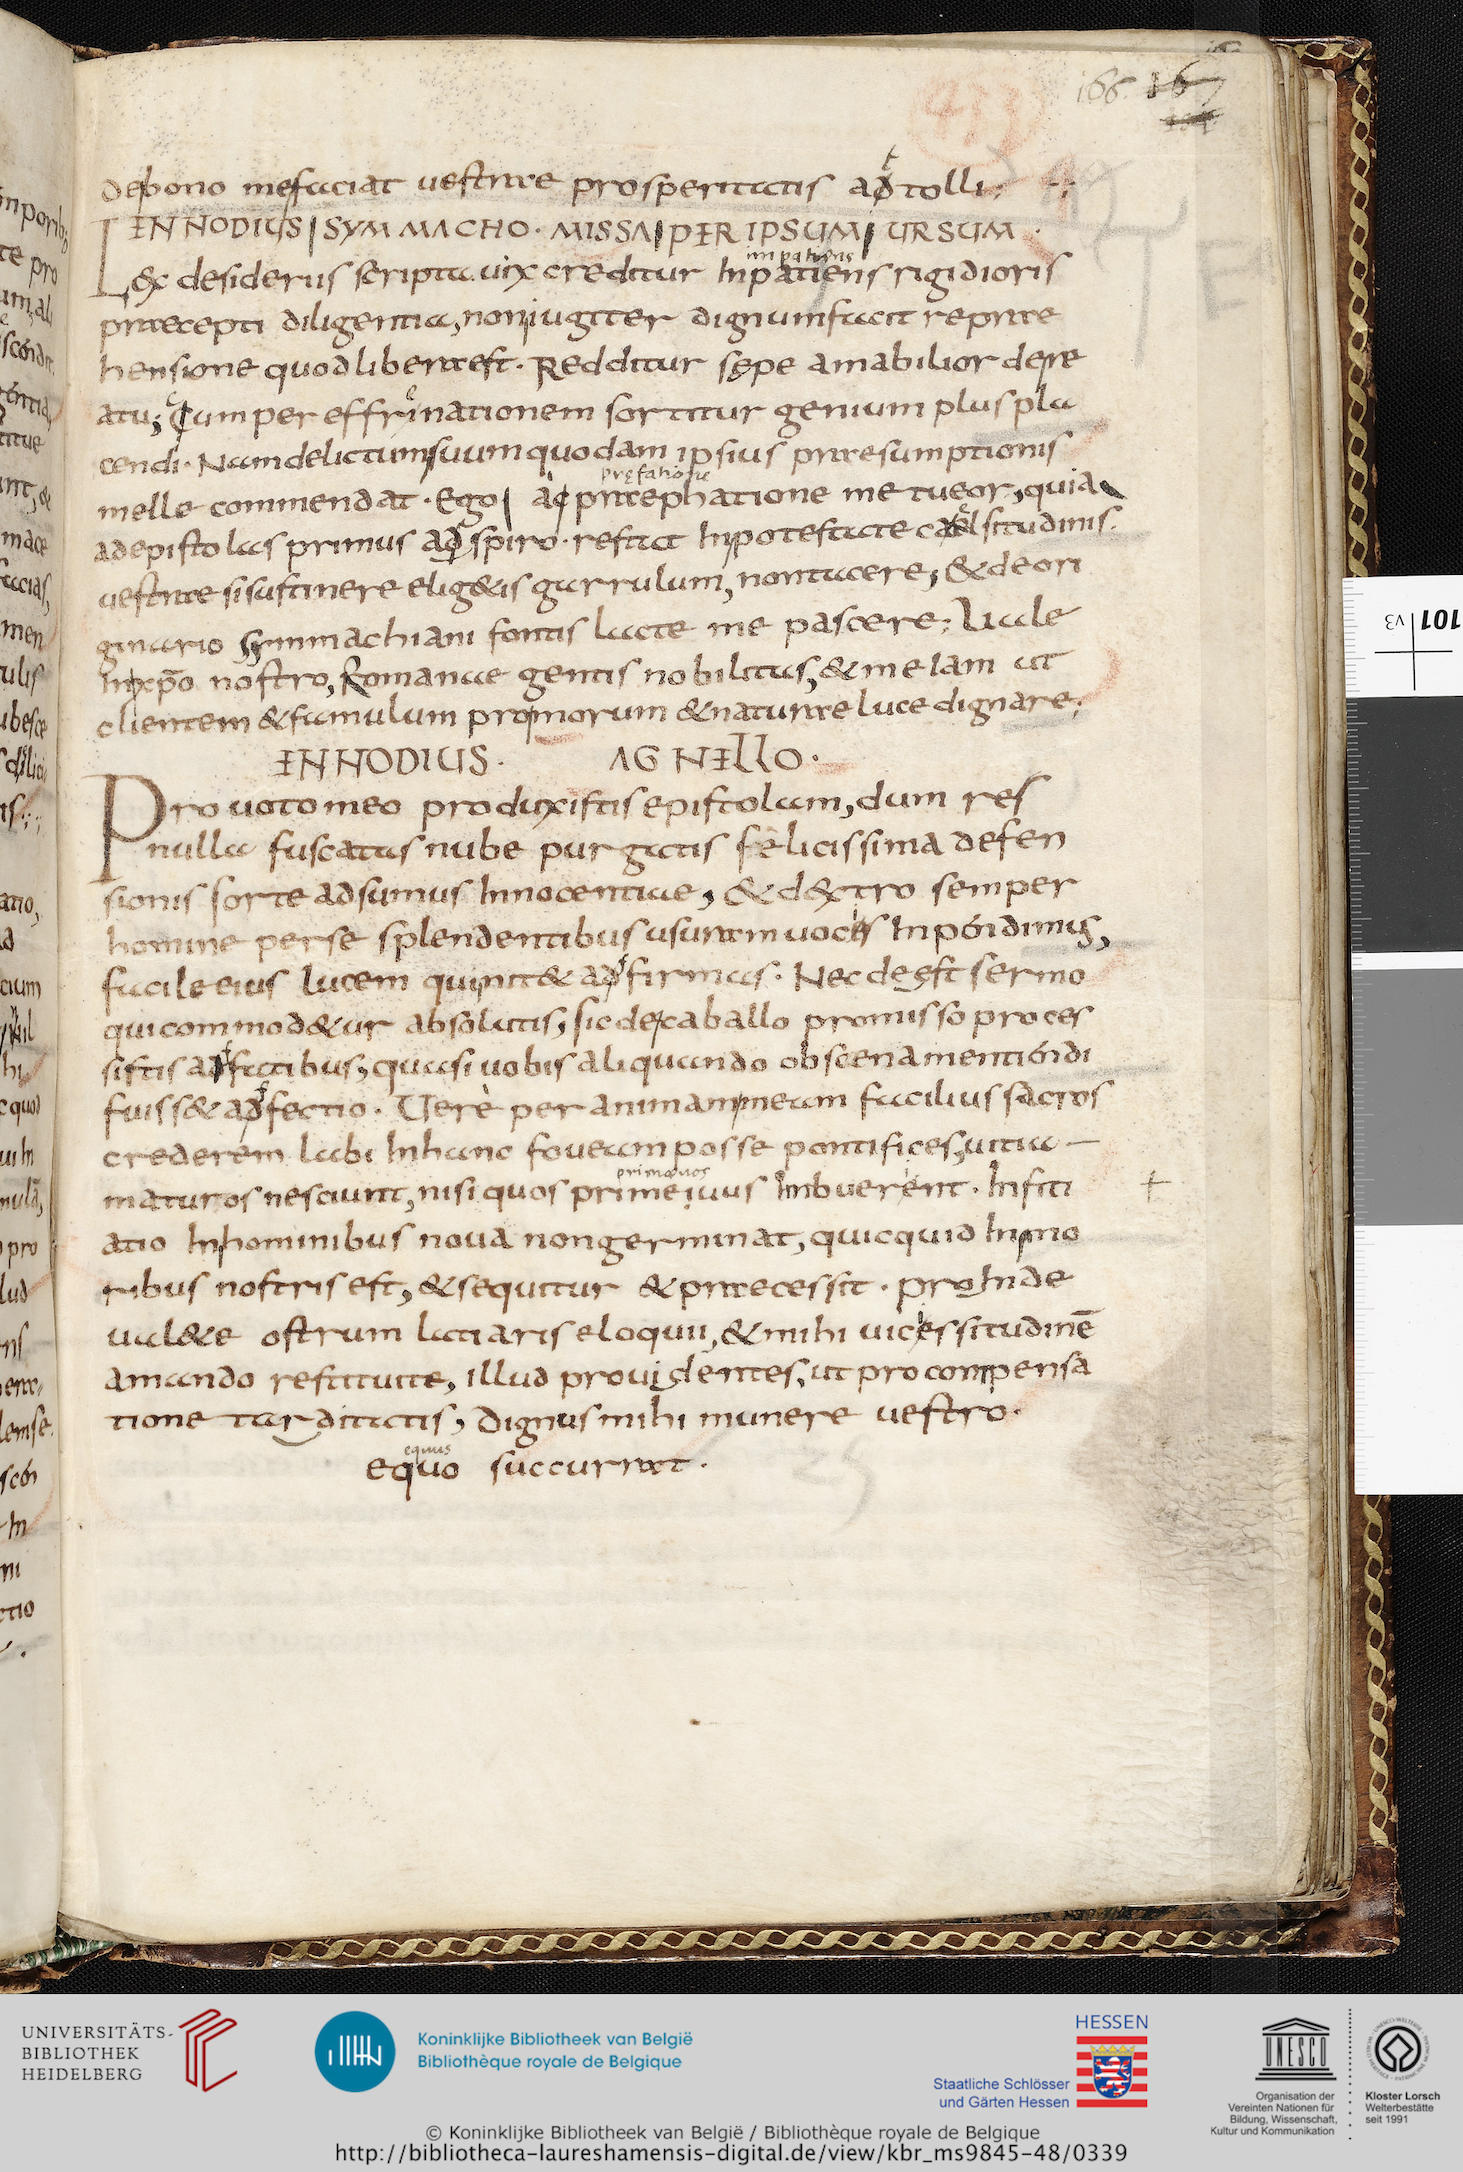 166. 167
debono mefaciat vestrae prosperitatis adtolli;
ENNODIUS SYMMACHO · MISSA PER IPSUM URSUM ·
impatiens
Lex desideriis scripta. uix creditur Inpatiens rigidioris
praecepti diligentia, non iugiter dignumfacit reprae
hensione quod liberaest · Redditur sępe amabilior de re
atu; Cum per effrinationem sortitur genium plus pla
cendi · Nam delictum suum quodam ipsius praesumptionis
prefatione
melle commendat · Ego ac praephatione me tueor, quia
ad epistolas primus adspiro · restat In potestate caelsitudinis ·
uestrae si sustinere elig&is garrulum, non tacere, & de ori
ginario symmachiani fontis lacte me pascere; Uale
In xp̄o nostro, Romanae gentis nobilitas, & me iam ut
clientem & famulum promorum & naturae luce dignare;
ENNODIUS · AGNELLO ·
Pro uoto meo produxistis epistolam, dum res
nulla fuscatas nube purgatis felicissima defen
sionis sorte adsumus Innocentiae, & d&xtro semper
homine per se splendentibus usuram uocis Inpendimus,
facile eius lucem qui nit& adfirmas · Nec deest sermo
qui commod&ur absolutis, sic de caballo promisso proces
sistis adfatibus, quasi uobis aliquando obscena mentiendi
fuiss& adfectio · Uere per animam meam facilius sacros
crederem labi In hanc foueam posse pontifices, uitia
primaeuos
maturos nesciunt, nisi quos primeiuus Imbuerent · Infiti
atio In hominibus noua non germinat, quicquid In mo
ribus nostris est, & sequitur & praecessit · proInde
ual&e ostrum latiaris eloquii, & mihi uicessitudinē
amando restituite, illud prouidentes, ut pro compensa
tione tarditatis, dignus mihi munere uestro ·
equus
equo succurrat ·
101
v3
UNIVERSITÄTS-
BIBLIOTHEK
HEIDELBERG
Koninklijke Bibliotheek van België
Bibliothèque royale de Belgique
HESSEN
Staatliche Schlösser
und Gärten Hessen
UNESCO
Organisation der
Vereinten Nationen für
Bildung, Wissenschaft,
Kultur und Kommunikation
Kloster Lorsch
Welterbestätte
seit 1991
© Koninklijke Bibliotheek van België / Bibliothèque royale de Belgique
http://bibliotheca-laureshamensis-digital.de/view/kbr_ms9845-48/0339